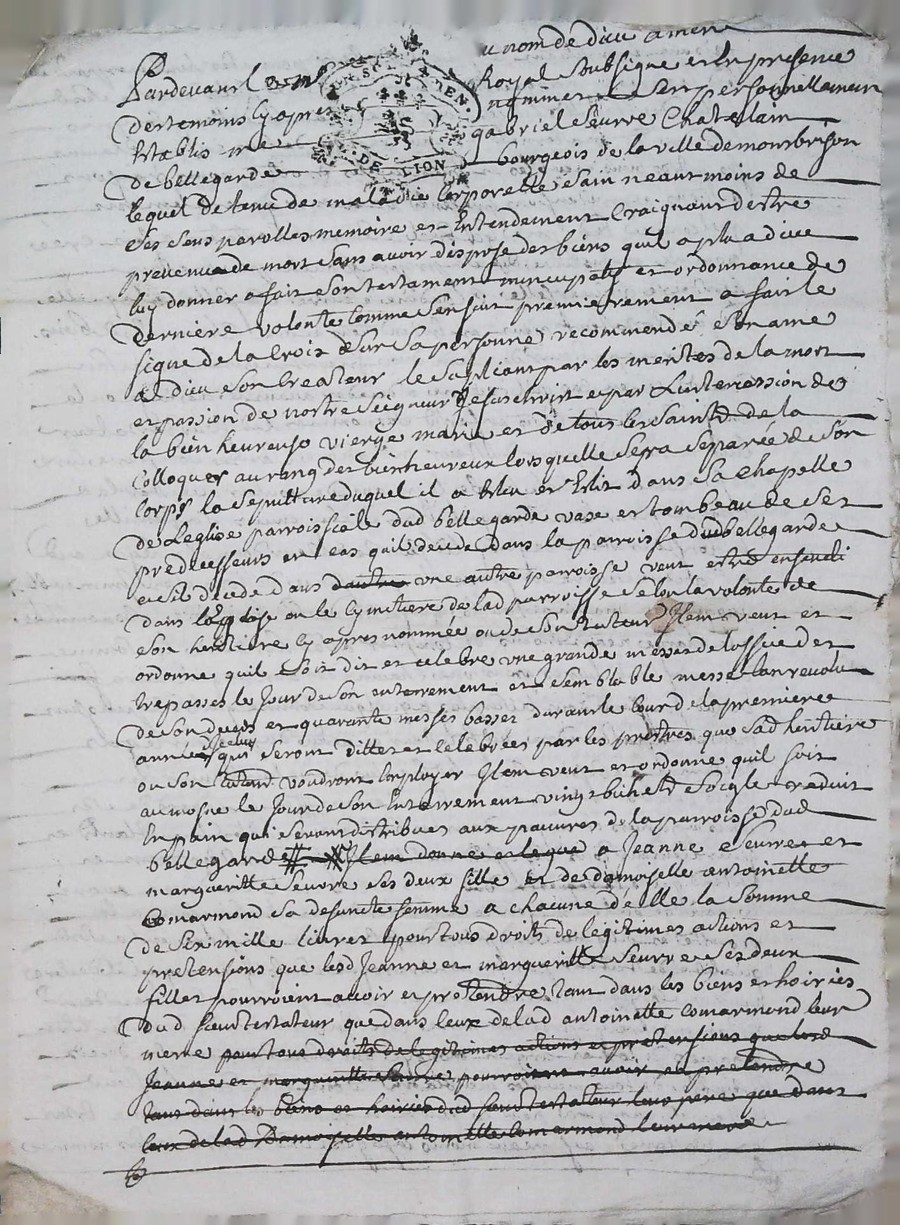 u nom de dieu amen
Pardevant Royal Soubsigne et En presence
des temoins Cy apres nommes En personnellement
Etablis me gabriel Seurre Chatelain
de bellegarde bourgeois de la ville de montbrison
lequel detenu de maladie Corporelle Sain neaut moins de
Ses Sens parolles memoire et Entendement Craignant destre
prevenu de mort Sans avoir dispose des biens quil a plu a dieu
luy donner a fait Son testament nuncupatif et ordonnance de
derniere volonte Comme Sensuit premierement a fait le
signe de la Croix Sur Sa personne recommendé Son ame
a dieu Son Createur le Supliant par les merites de la mort
et passion de nostre Seigneur Jesus christ et par Lintercession de
la bien heureuse vierge marie et de tous les Saints de la
Colloquer au rang des bienheureux lors quelle Sera Separée de Son
Corps la Sepulture duquel il a Elu et Elit dans Sa Chapelle
de Leglise parroissiale dud bellegarde vase et tombeau de Ses
predecesseurs en cas quil decede dans la parroisse dud bellegarde
et Sil decede dans dautre une autre parroisse veut estre enseveli
dans leglise ou le Cymetiere de lad parroisse Selon la volonte de
Son heritiere Cy apres nommée ou de Son tuteur Item veut et
ordonne quil Soit dit et celebre une grande messe de loffice des
trepasses le Jour de Son enterrement et Semblable messe lan revolu
de Son deces et quarante messes basses durant le Cour de la premiere
année qui Seront dittes et Celebrées par les prestres que Sad heritiere
ou Son voudront Employer Item veut et ordonne quil Soit
aumosne le Jour de Son Enterrement vingt bichets Soigle reduit
En pain qui Seront distribues aux pauvres de la parroisse dud
bellegarde Item donne et legue a Jeanne Seurre et
margueritte Seurre Ses deux fille et de damoiselle antoinette
Comarmond Sa defuncte femme a chacune delle la Somme
de Six mille livres pour tous droits de legitimes actions et
pretensions que lesd Jeanne et margueritte Seurre Ses deux
filles pourroient avoir et pretendre tant dans les biens et hoiries
dud Sieur testateur que dans Ceux de lad antoinette Comarmond leur
mere pour tous droits de legitimes actions et pretensions que lesd
Jeanne et margueritte Seurre pourroient avoir et pretendre
tant dans les biens et hoiries dud Sieur testateur leur pere que dans
Ceux de lad damoiselle antoinette Comarmond leur mere
DE LION